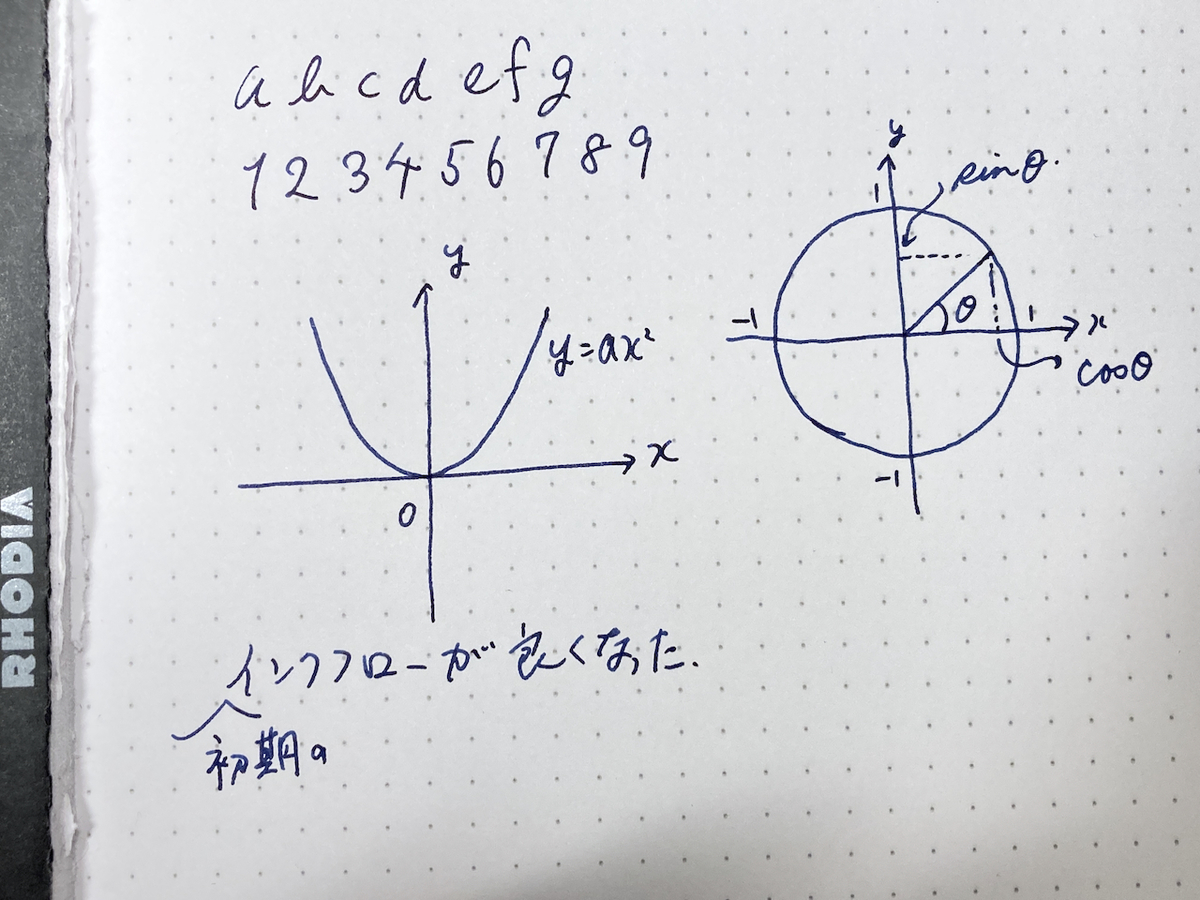 a b c d e f g
1 2 3 4 5 6 7 8 9
y
y=ax²
x
0
y
1
sinθ.
-1
θ
1
x
cosθ
-1
インクフローが良くなった.
初期の
RHODIA